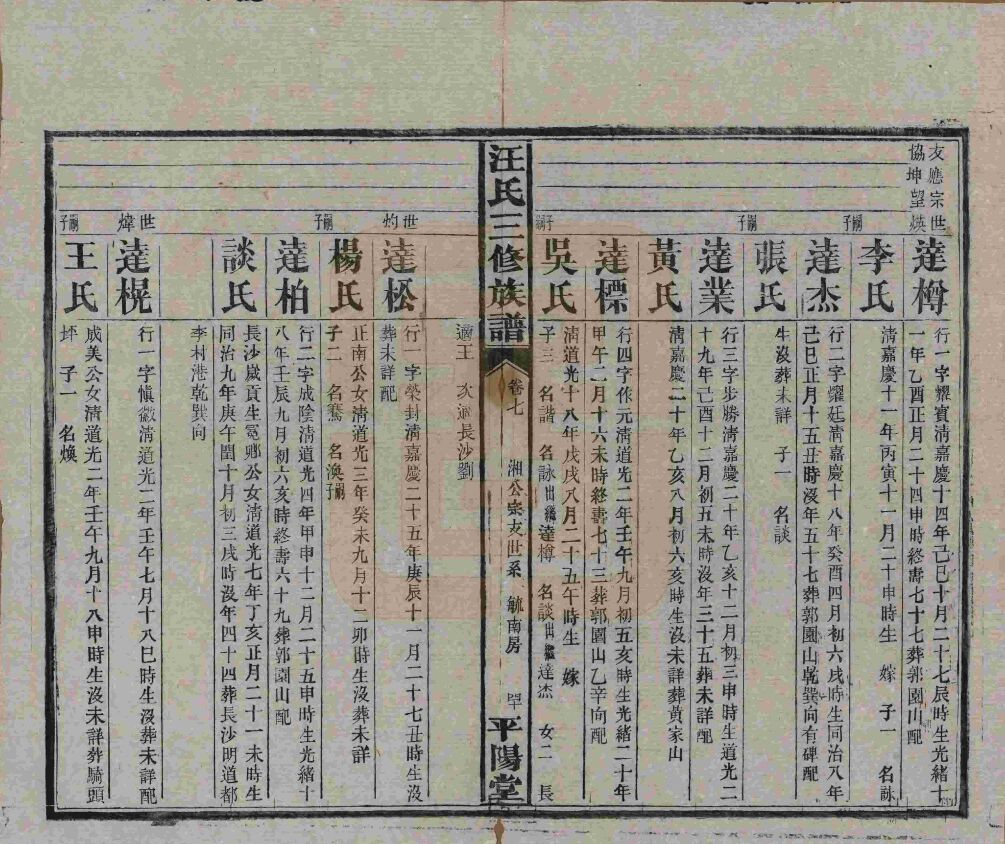 友應宗世
協坤望煐
達樽
行一字耀賓清嘉慶十四年己巳十月二十七辰時生光緒十
一年乙酉正月二十四申時終壽七十七葬郭園山配
李氏
嗣子
清嘉慶十一年丙寅十一月二十申時生 嫁 子一 名詠
達杰
行二字耀廷清嘉慶十八年癸酉四月初六戌時生同治八年
己巳正月十五丑時沒年五十七葬郭園山乾巽向有碑配
張氏
嗣子
生沒葬未詳 子一 名談
達業
行三字步勝清嘉慶二十年乙亥十二月初三申時生道光二
十九年己酉十二月初五未時沒年三十五葬未詳配
黃氏
清嘉慶二十年乙亥八月初六亥時生沒未詳葬黃家山
達標
行四字作元清道光二年壬午九月初五亥時生光緒二十年
甲午二月十六未時終壽七十三葬郭園山乙辛向配
吳氏
嗣子
清道光十八年戊戌八月二十五午時生 嫁
子三 名諧 名詠出繼達樽 名談出繼達杰 女二 長
汪氏三修族譜
卷七 湘公宗友世系 毓南房 罕
平陽堂
適王 次適長沙劉
世灼
達松
行一字榮封清嘉慶二十五年庚辰十一月二十七丑時生沒
葬未詳配
楊氏
嗣子
正南公女清道光三年癸未九月十二卯時生沒葬未詳
子二 名騫 名渙嗣子
達柏
行二字成陰清道光四年甲申十二月二十五申時生光緒十
八年壬辰九月初六亥時終壽六十九葬郭園山配
談氏
長沙歲貢生冕鄉公女清道光七年丁亥正月二十一未時生
同治九年庚午閏十月初三戌時沒年四十四葬長沙明道都
李村港乾巽向
世煒
達榥
行一字愼徽清道光二年壬午七月十八巳時生沒葬未詳配
王氏
嗣子
成美公女清道光二年壬午九月十八申時生沒未詳葬騎頭
坪 子一 名煥